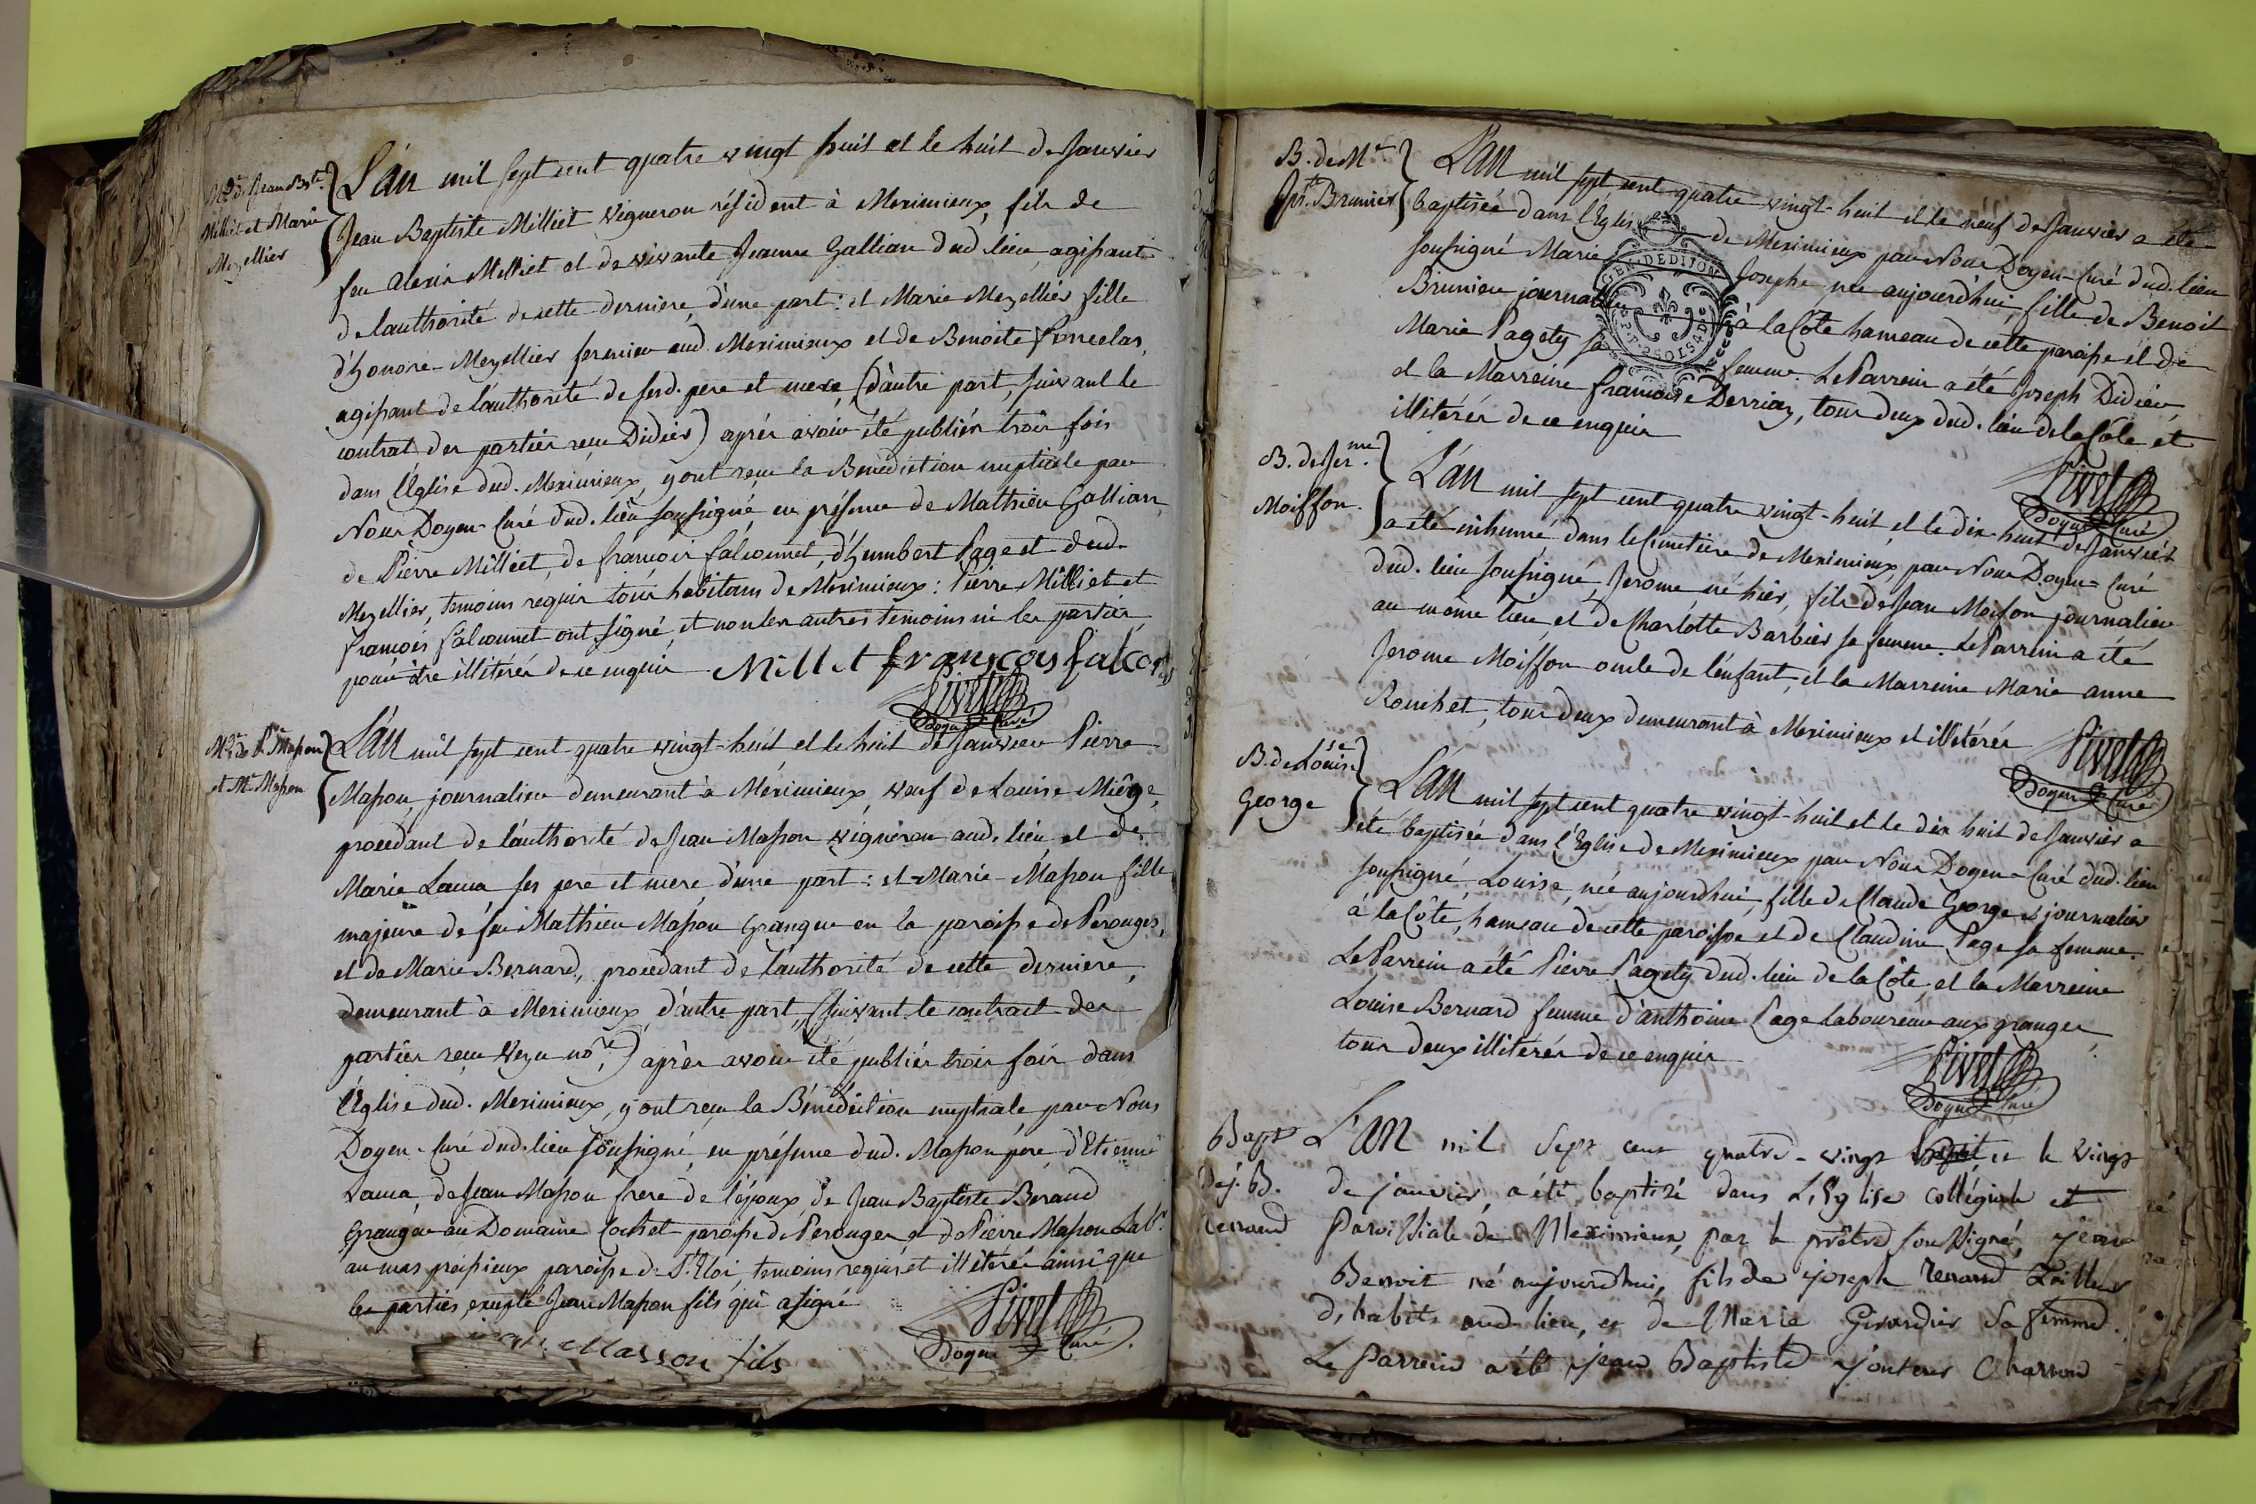 Mge de Jean Bste
Milliet et Marie
Mezellier
L'an mil sept cent quatre vingt huit et le huit de Janvier
Jean Baptiste Milliet vigneron résident à Meximieux, fils de
feu Alexis Milliet et de vivante Jeanne Gallian dud. lieu, agissant
de l'authorité de cette derniere, d'une part : et Marie Mezellier fille
d'honoré Mezellier fermier aud. Meximieux et de Benoite
agissant de l'authorité de sesd. pere et mere, (d'autre part, suivant le
contrat des parties reçu Didier) après avoir été publiés trois fois
dans l'Eglise dud. Meximieux, y ont reçu la Bénédiction nuptiale par
Nous Doyen-Curé dud. lieu soussigné en présence de Mathieu Gallian,
de Pierre Milliet, de françois falconnet, d'humbert Page et dud.
Mezellier, temoins requis tous habitans de Meximieux : Pierre Milliet et
françois falconnet ont signé, et non les autres temoins ni les parties
pour être illitérés de ce enquis Millet françois falco
Pivet
Doyen Curé
Mge de Pre Masson
et Me Masson
L'an mil sept cent quatre vingt-huit, et le huit de Janvier Pierre
Masson, journalier demeurant à Méximieux, veuf de Louise Miége,
procédant de l'authorité de Jean Masson vigneron aud. lieu et de
Marie Lama, ses pere et mere, d'une part : et Marie Masson fille
majeure de feu Mathieu Masson Granger en la paroisse de Perouges,
et de Marie Bernard, procédant de l'authorité de cette derniere,
demeurant à Meximieux, d'autre part, (suivant le contract des
parties reçu nore) après avoir été publiés trois fois dans
l'Eglise dud. Meximieux, y ont reçu la Bénédiction nuptiale, par Nous
Doyen-Curé dud. lieu soussigné, en présence dud. Masson père, d'Etienne
Lama, de Jean Masson frere de l'époux, de Jean Baptiste Beraud
Granger au Domaine Cochet paroisse de Perouges, et de Pierre Masson Labr
au mas paroisse de St Eloi, temoins requis et illitérés ainsi que
les parties, excepté Jean Masson fils qui a signé
Masson fils
Pivet
Doyen Curé
B. de Me
Jphte Brunier
L'an mil sept cent quatre vingt-huit et le neuf de Janvier a été
baptisée dans l'Eglise de Meximieux par Nous Doyen-Curé dud. lieu
soussigné Marie Josephe née aujourdhui, fille de Benoit
Brunier journalier à la Côte hameau de cette paroisse et de
Marie Pagety sa femme. Le Parrein a été Joseph Didier,
et la Marreine françoise Derriaz, tous deux dud. lieu de la Côte et
illitérés de ce enquis
GEN. DE DIJON
Pivet
Doyen Curé
B. de Jerme
Moisson.
L'an mil sept cent quatre vingt-huit, et le dix-huit de Janvier
a été inhumé dans le Cimetiere de Meximieux, par Nous Doyen-Curé
dud. lieu soussigné, Jerome, né hier, fils de Jean Moisson journalier
au même lieu, et de Charlotte Barbier sa femme. Le Parrein a été
Jerome Moisson oncle de l'enfant, et la Marreine Marie anne
Rouchet, tous deux demeurant à Meximieux et illitérés
Pivet
Doyen Curé
B. de Louise
George
L'an mil sept cent quatre vingt-huit et le dix huit de Janvier a
été baptisée dans l'Eglise de Meximieux par Nous Doyen-Curé dud. lieu
soussigné, Louise, née aujourdhui, fille de Claude George journalier
à la Côte, hameau de cette paroisse et de Claudine Page sa femme.
Le Parrein a été Pierre Pagety dud. lieu de la Côte, et la Marreine
Louise Bernard femme d'anthoine Page Laboureur aux granges,
tous deux illitérés de ce enquis
Pivet
Doyen Curé
Bapt
de j. B.
renard
L'an mil sept cent quatre-vingt huit et le vingt
de janvier, a été baptizé dans L'Eglise Collégiale et
Paroissiale de Meximieux, par le prêtre soussigné, jean
Benoit né aujourdhui, fils de joseph renard Tailleur
d'habits aud. lieu, et de Maria Girardier sa femme.
Le Parrein a été jean Baptiste Charron